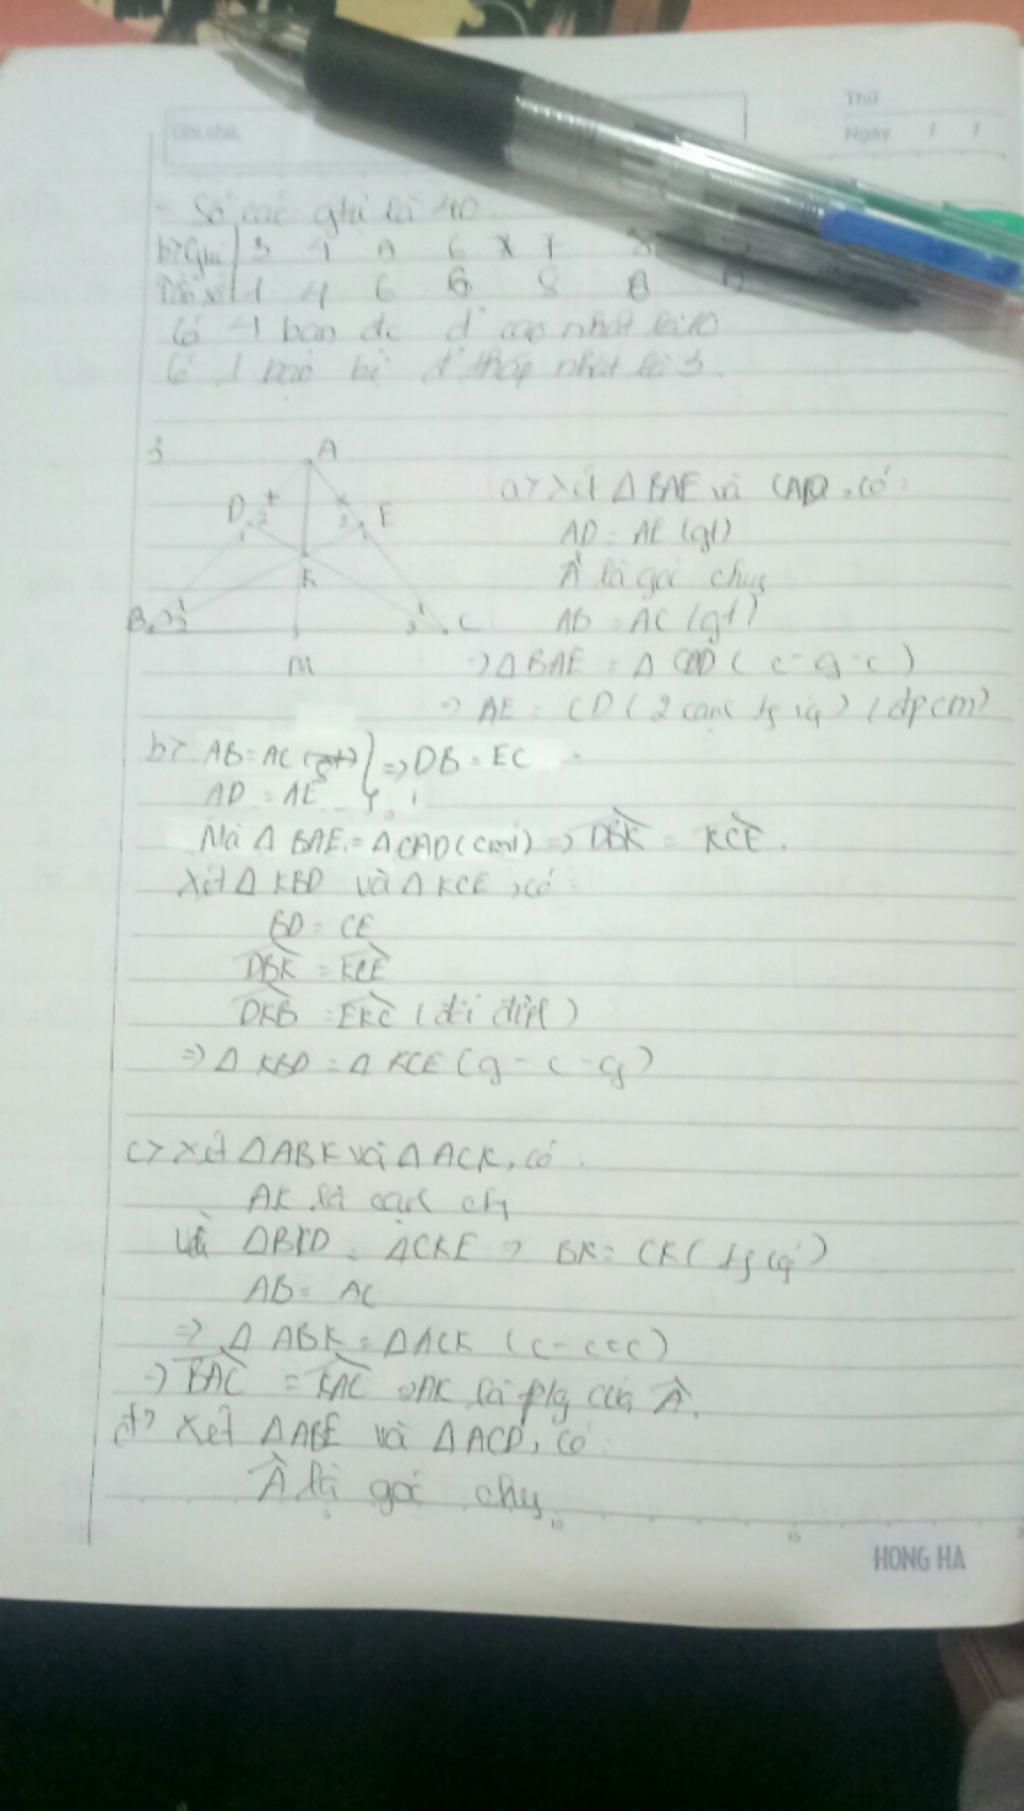 Thứ
Ghi chú:
Ngày / /
- Số các gtri là 40
3 4 6 7 8
4 6 6 8 8
Có 4 bạn đc đ' cao nhất là 10
Có 1 bạn bị đ' thấp nhất là 3.
3
A
D 2 2 E
1 1
K
B 1 2 1 2 C
M
a> Xét △BAE và CAD, có:
AD = AE (gt)
Â là góc chug
AB = AC (gt)
=> △BAE = △CAD (c-g-c)
=> AE = CD (2 cạnh tg ứg) (đpcm)
b> AB = AC (gt) } => DB = EC
AD = AE
Mà △BAE = △CAD (cmt) => DBK = KCE.
Xét △KBD và △KCE, có:
BD = CE
DBK = KCE
DKB = EKC (đối đỉnh)
=> △KBD = △KCE (g-c-g)
c> Xét △ABK và △ACK, có:
AK là cạnh ch
Vì △BKD = △CKE => BK = CK (tg ứg)
AB = AC
=> △ABK = △ACK (c-c-c)
=> BAC = KAC => AK là p/g của Â.
d> Xét △ABE và △ACD, có:
Â là góc chug
5 10 15
HONG HA